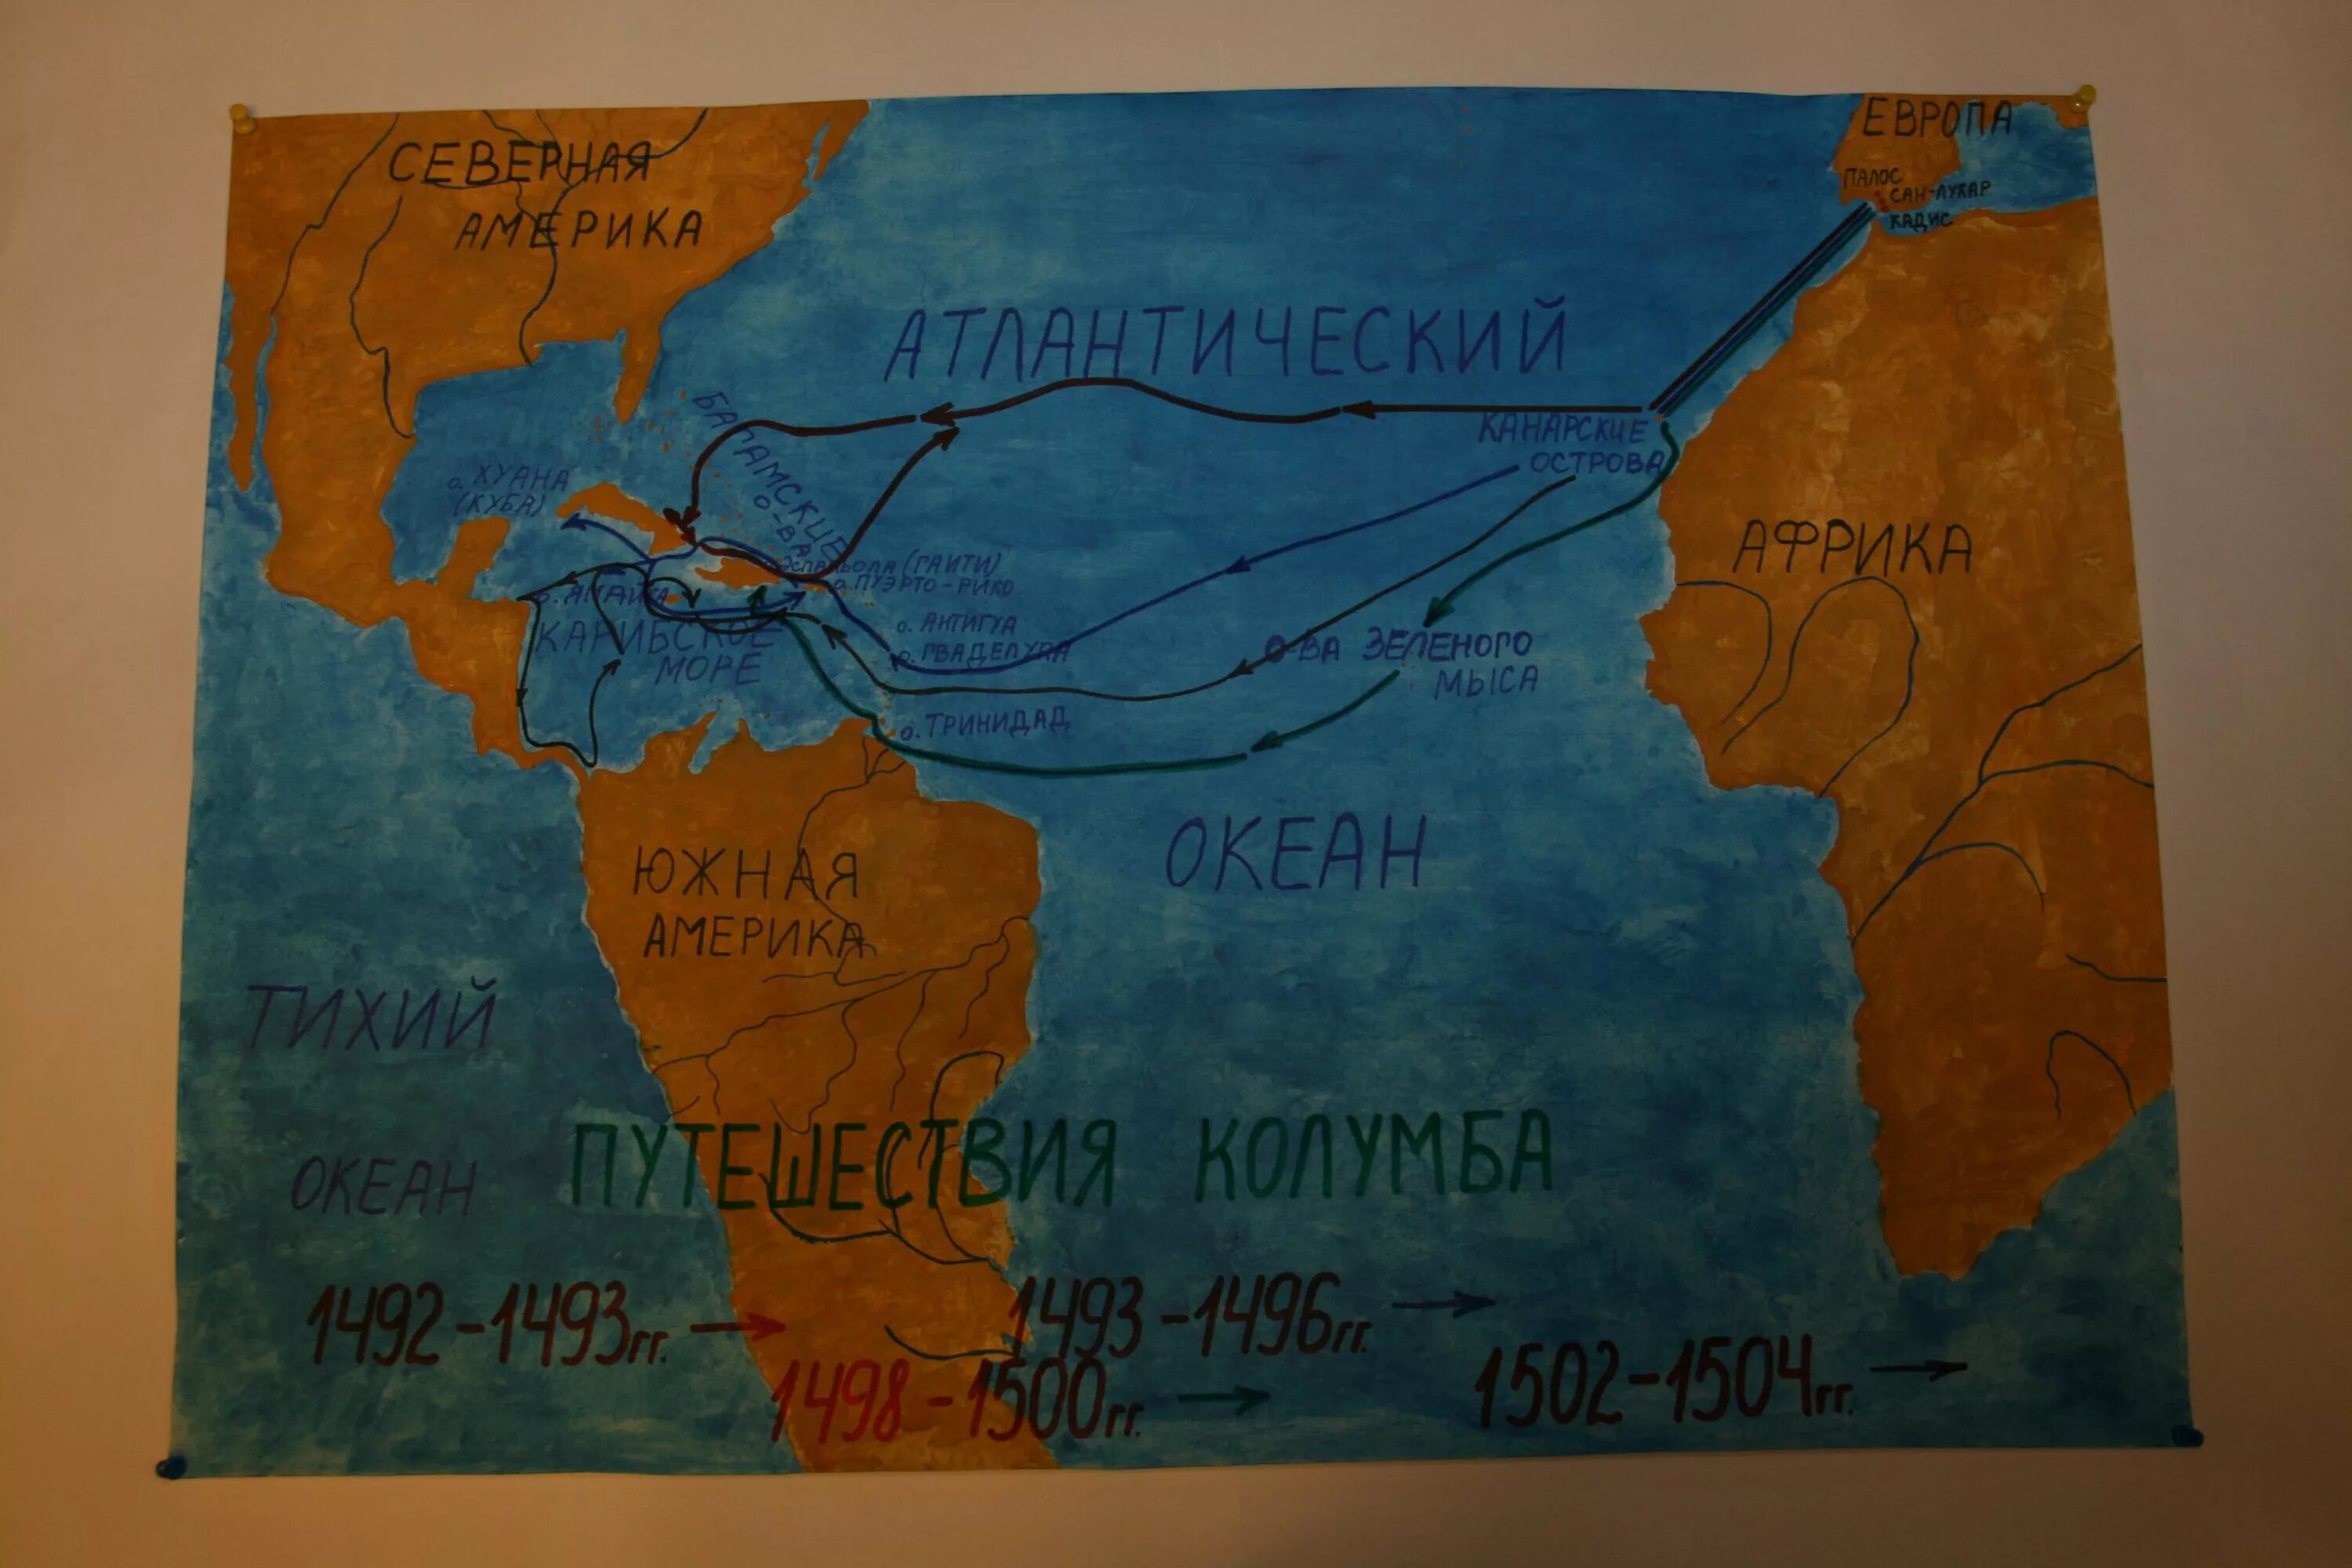 ЕВРОПА
СЕВЕРНАЯ
АМЕРИКА
ПАЛОС
САН-ЛУКАР
КАДИС
АТЛАНТИЧЕСКИЙ
КАНАРСКИЕ
ОСТРОВА
БАГАМСКИЕ
О-ВА
о. ХУАНА
(КУБА)
АФРИКА
ЭСПАНЬОЛА (ГАИТИ)
о. ПУЭРТО-РИКО
о. ЯМАЙКА
о. АНТИГУА
КАРИБСКОЕ
МОРЕ
о. ГВАДЕЛУПА
О-ВА ЗЕЛЕНОГО
МЫСА
о. ТРИНИДАД
ОКЕАН
ЮЖНАЯ
АМЕРИКА
ТИХИЙ
ОКЕАН
ПУТЕШЕСТВИЯ КОЛУМБА
1492-1493гг.
1493-1496гг.
1498-1500гг.
1502-1504гг.